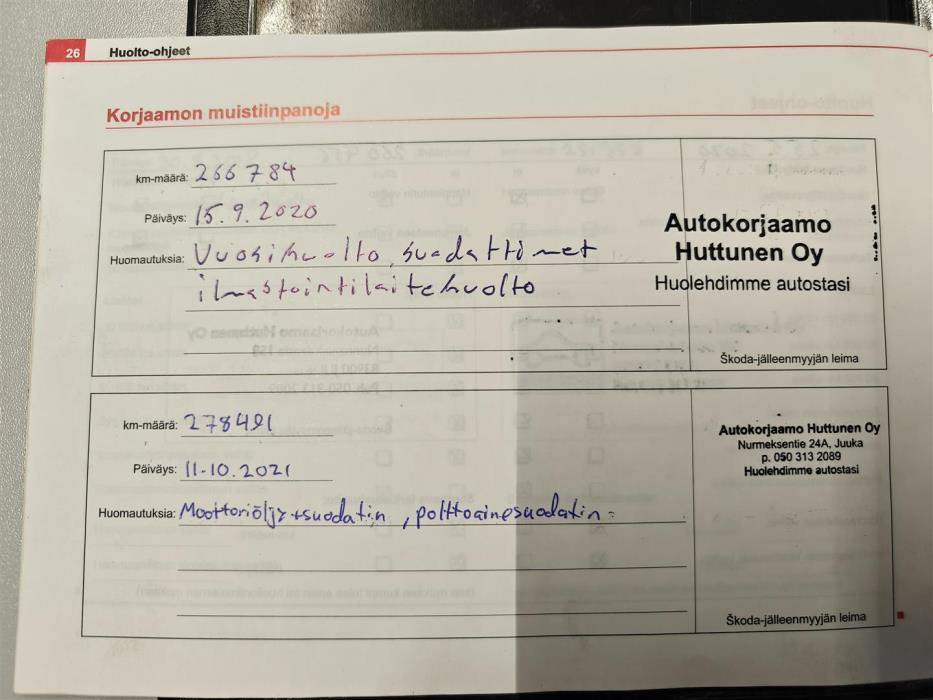 26 Huolto-ohjeet
Korjaamon muistiinpanoja
km-määrä: 266 784
Päiväys: 15.9.2020
Huomautuksia: Vuosihuolto, suodattimet
ilmastointilaitehuolto
Autokorjaamo
Huttunen Oy
Huolehdimme autostasi
Škoda-jälleenmyyjän leima
km-määrä: 278491
Päiväys: 11.10.2021
Huomautuksia: Moottoriöljy+suodatin, polttoainesuodatin
Autokorjaamo Huttunen Oy
Nurmeksentie 24A, Juuka
p. 050 313 2089
Huolehdimme autostasi
Škoda-jälleenmyyjän leima